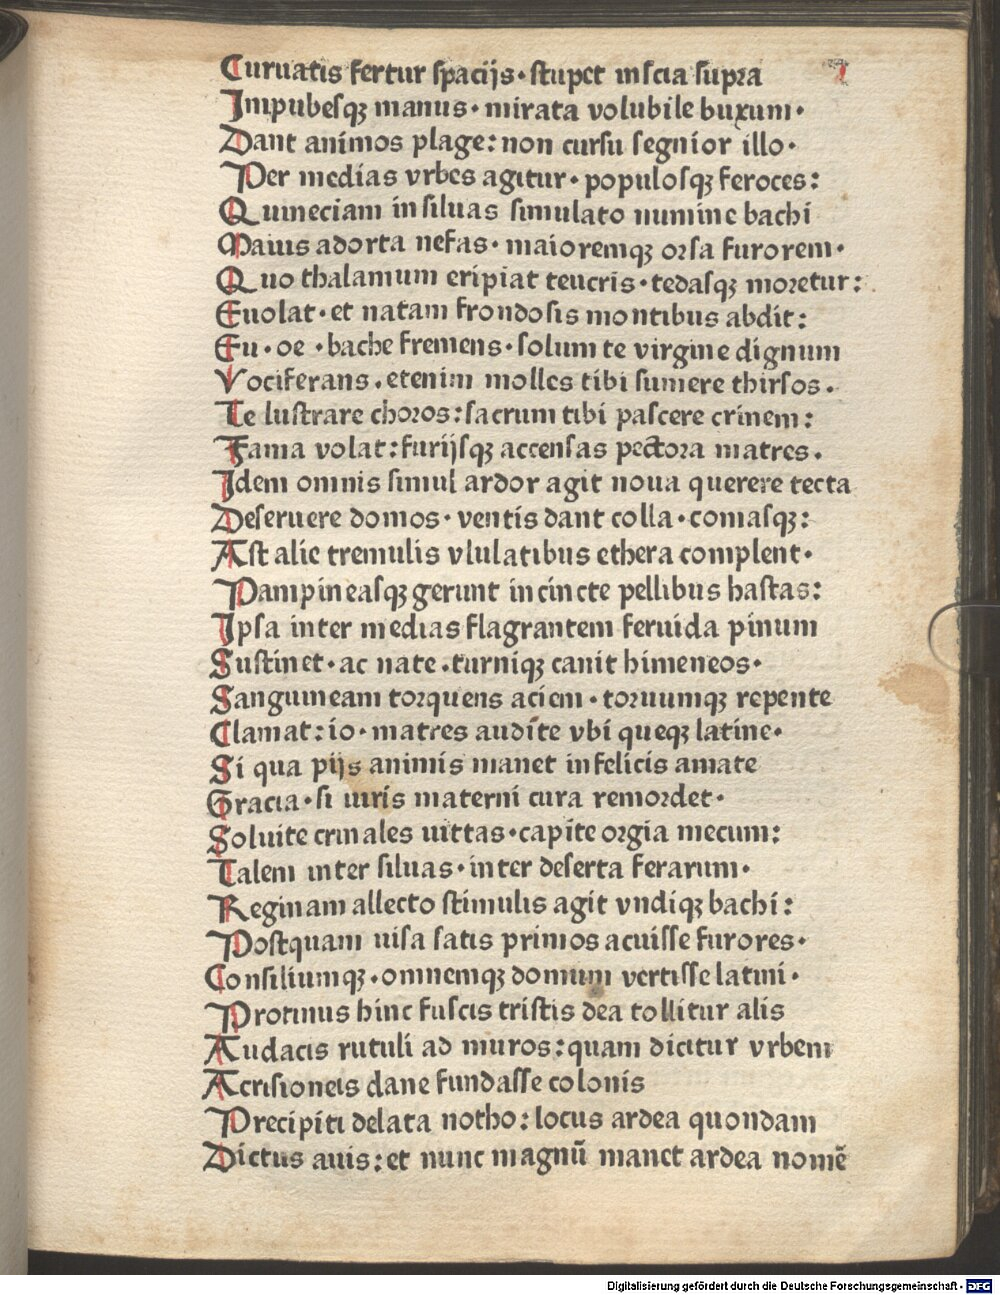 Curuatis fertur spacijs· stupet inscia supra
Impubesqꝫ manus· mirata volubile buxum·
Dant animos plage: non cursu segnior illo·
Per medias vrbes agitur· populosqꝫ feroces:
Quineciam in siluas simulato numine bachi
Maius adorta nefas· maioremqꝫ orsa furorem·
Quo thalamum eripiat teucris· tedasqꝫ moretur:
Euolat· et natam frondosis montibus abdit:
Eu· oe· bache fremens· solum te virgine dignum
Vociferans. etenim molles tibi sumere thirsos.
Te lustrare choros: sacrum tibi pascere crinem:
Fama volat: furijsqꝫ accensas pectora matres.
Idem omnis simul ardor agit noua querere tecta
Deseruere domos· ventis dant colla· comasqꝫ:
Ast alie tremulis vlulatibus ethera complent·
Pampineasqꝫ gerunt incincte pellibus hastas:
Ipsa inter medias flagrantem feruida pinum
Sustinet· ac nate. turniqꝫ canit himeneos·
Sanguineam torquens aciem· toruumqꝫ repente
Clamat: io· matres audite vbi queqꝫ latine·
Si qua pijs animis manet infelicis amate
Gracia· si iuris materni cura remordet·
Soluite crinales uittas· capite orgia mecum:
Talem inter siluas· inter deserta ferarum·
Reginam allecto stimulis agit vndiqꝫ bachi:
Postquam uisa satis primos acuisse furores·
Consiliumqꝫ· omnemqꝫ domum vertisse latini·
Protinus hinc fuscis tristis dea tollitur alis
Audacis rutuli ad muros: quam dicitur vrbem
Acrisioneis dane fundasse colonis
Precipiti delata notho: locus ardea quondam
Dictus auis: et nunc magnū manet ardea nomē
Digitalisierung gefördert durch die Deutsche Forschungsgemeinschaft - DFG